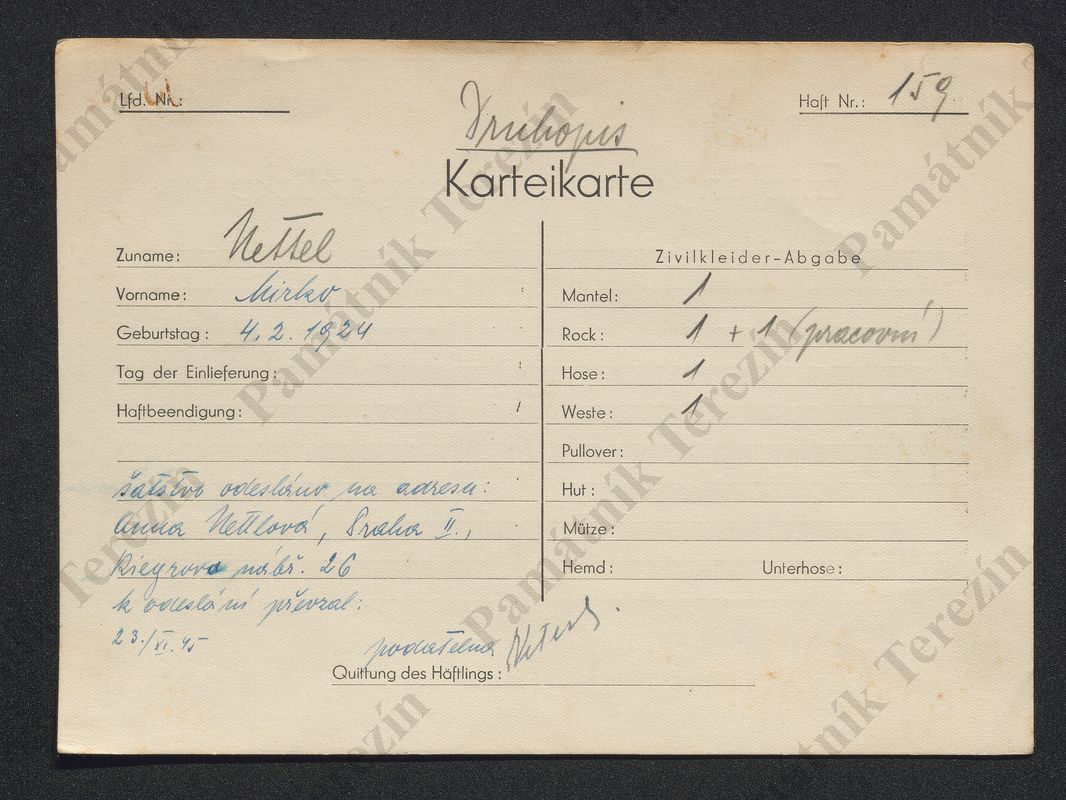 Lfd. Nr.:
Haft Nr.: 159
Druhopis
Karteikarte
Zuname: Nettel
Vorname: Mirko
Geburtstag: 4.2.1924
Tag der Einlieferung:
Haftbeendigung:
šatstvo odesláno na adresu:
Anna Nettlová, Praha II.,
Riegrovo nábř. 26
k odeslání převzal:
23./XI. 45
podatelna
Quittung des Häftlings:
Zivilkleider-Abgabe
Mantel: 1
Rock: 1 + 1 (pracovní)
Hose: 1
Weste: 1
Pullover:
Hut:
Mütze:
Hemd: Unterhose:
Památník Terezín